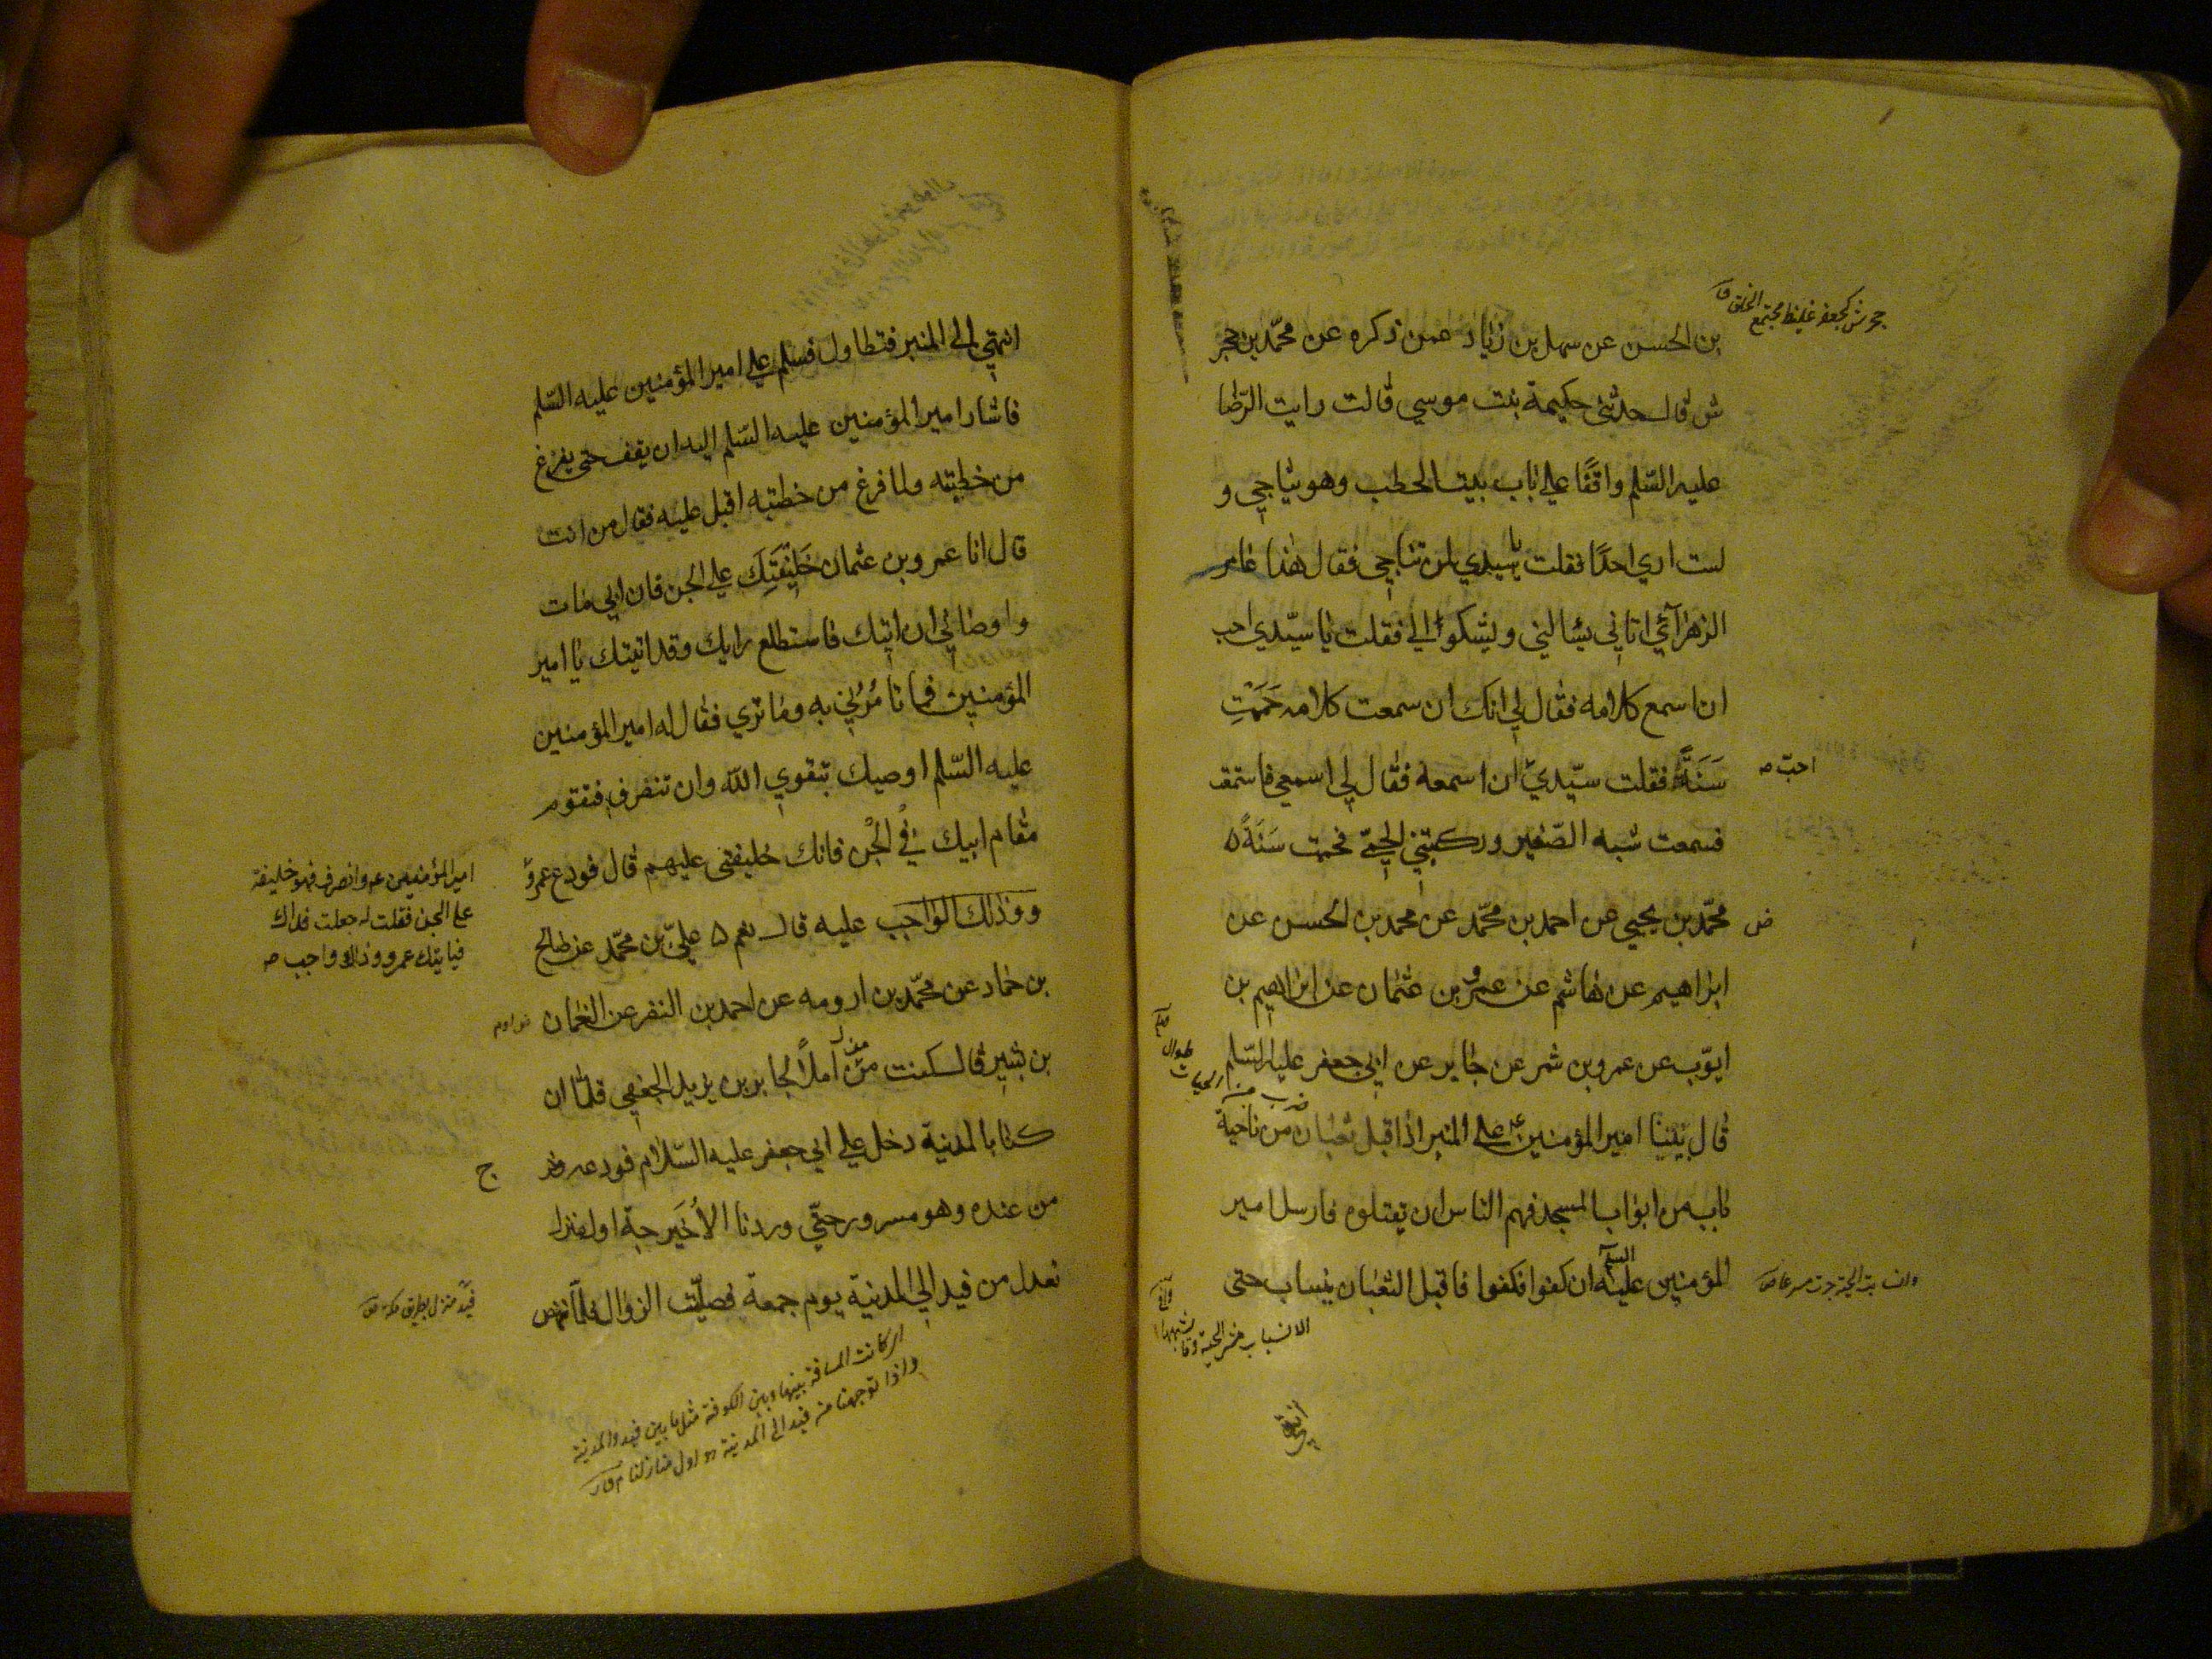 جحرش كجعفر غليظ مجتمع الخلق ق
بن الحسن عن سهل بن زياد عمن ذكره عن محمّد بن جحر
ش قال حدثتني حكيمة بنت موسي قالت رايت الرّضا
عليه السّلم واقفًا علي باب بيت الحطب وهو يناجي و
لست اري احدًا فقلت يا سيدي لمن تناجي فقال هذا عامر
الزهرآئي اتاني يسالني ويشكوا الي فقلت يا سيّدي احب
ان اسمع كلامه فقال لي انك ان سمعت كلامه حَمَمْتِ
سَنَةً فقلت سيّدي ان اسمعه فقال لي اسمعي فاستمعت
احبّ صه
فسمعت شبه الصّفير وركبتني الحمّي فحممت سَنَةً ٥
ض محمّد بن يحيي عن احمد بن محمّد عن محمد بن الحسن عن
ابراهيم عن هاشم عن عمرو بن عثمان عن ابراهيم بن
ايوّب عن عمرو بن شمر عن جابر عن ابي جعفر عليه السّلم
قال بيننا امير المؤمنين ع علي المنبر اذا قبل ثعبان من ناحية
باب من ابواب المسجد فهم الناس ان يقتلوه فارسل امير
المؤمنين عليه السلم ان كفوا فكفوا فاقبل الثعبان ينساب حتى
وانسابت الحية جرت مسرعا ص
الانسياب مشى الحية وما يشبهها
انتهي
انتهي الي المنبر فتطاول فسلم علي امير المؤمنين عليه السّلم
فاشار امير المؤمنين عليه السّلم اليه ان يقف حتى يفرغ
من خطبته ولما فرغ من خطبته اقبل عليه فقال من انت
قال انا عمرو بن عثمان خَلِيْفَتِكَ علي الجن فان ابي مات
واوصاني ان اتيك فاستطلع رايك وقد اتيتك يا امير
المؤمنين فما تا مُرُني به وما تري فقال له امير المؤمنين
عليه السّلم اوصيك بتقوي الله وان تنصرف فتقوم
مقام ابيك في الجْن فانك خليفتى عليهم قال فودع عمروٌ
امير المؤمنين ع وانصرف فهو خليفته
على الجن فقلت له جعلت فداك
فياتيك عمرو وذاك واجب صه
ووذلك الواجب عليه قال نعم ٥ عليّ بن محمّد عن صالح
بن حماد عن محمّد بن ارومه عن احمد بن النضر عن النعمان
بن بشير قال كنت مزاملًا لجابر بن يزيد الجعفي فلمّا ان
كنا بالمدنية دخل علي ابي جعفر عليه السّلام فودعه وخر
ج
من عنده وهو مسرور حتّي وردنا الاُخَيرجة اول منزل
نعدل من فيد الي المدنية يوم جمعة فصلّيت الزوال فلمّا نهض
فيد منزل بطريق مكة ص
اي كانت المسافة بينها وبين الكوفة مثل ما بين فيد والمدنية
واذا توجهنا من فيد الى المدينة هو اول منازلنا